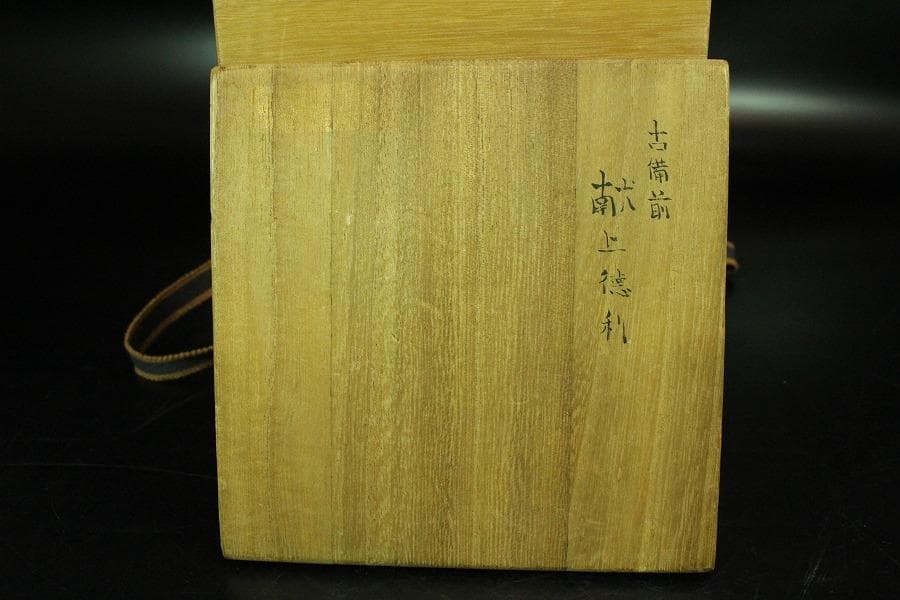 古備前
献上徳利